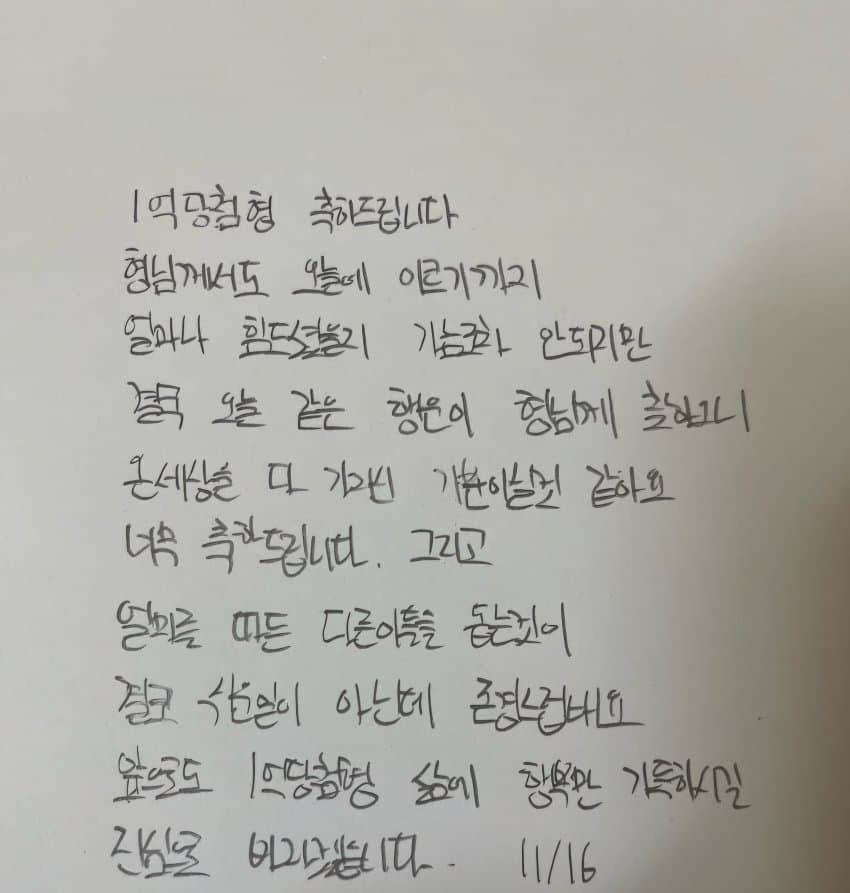 1억당첨형 축하드립니다
형님께서도 오늘에 이르기까지
얼마나 힘드셨을지 가늠조차 안되지만
결국 오늘 같은 행운이 형님께 찾아오니
온세상을 다 가지신 기분이실것 같아요
너무 축하드립니다. 그리고
얼마를 따든 다른이들을 돕는것이
결코 쉬운일이 아닌데 존경스럽네요
앞으로도 1억당첨형 삶에 행복만 가득하시길
진심으로 바라겠습니다. 11/16